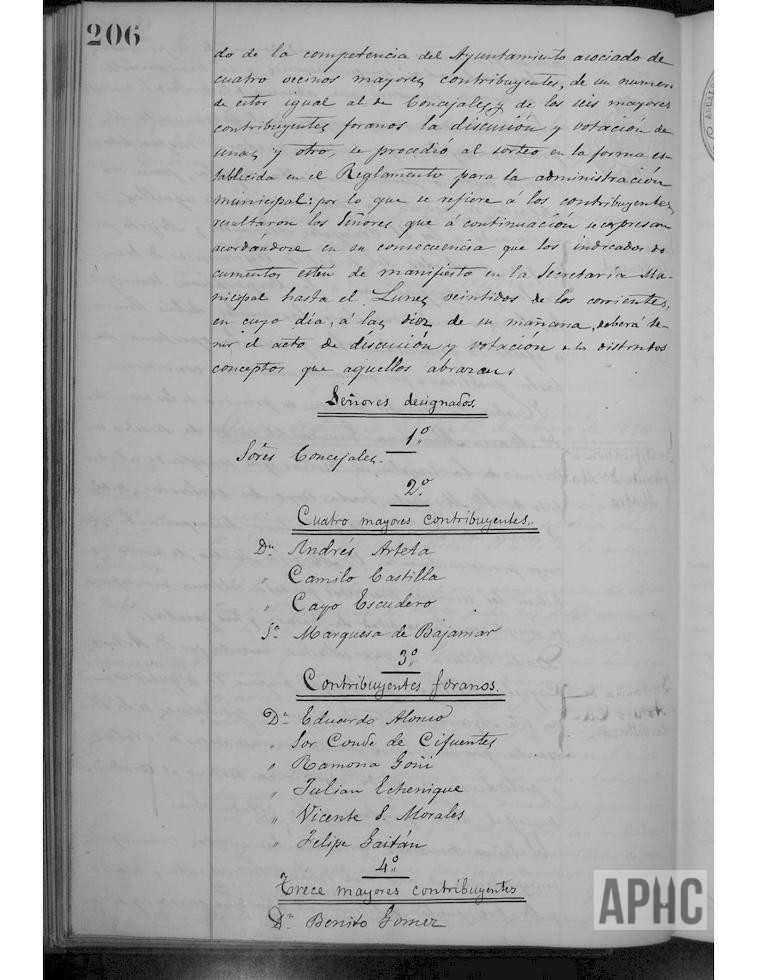 206
do de la competencia del Ayuntamiento asociado de
cuatro vecinos mayores contribuyentes, de un numero
de estos igual al de Concejales y de los seis mayores
contribuyentes foranos la discusión y votación de
unas y otro, se procedió al sorteo en la forma es-
tablecida en el Reglamento para la administración
municipal: por lo que se refiere á los contribuyentes,
resultaron los Señores que á continuación se expresan
acordándose en su consecuencia que los indicados do
cumentos estén de manifiesto en la Secretaría Mu-
nicipal hasta el Lunes veintidos de los corrientes,
en cuyo día, á las diez de su mañana, deberá te-
nir el acto de discusión y votación los distintos
conceptos que aquellos abrazan.
Señores designados.
1º
Sores Concejales.
2º
Cuatro mayores contribuyentes.
Dn Andrés Arteta
" Camilo Castilla
" Cayo Escudero
Sa Marquesa de Bajamar
3º
Contribuyentes foranos.
Dn Eduardo Alonso
" Sor Conde de Cifuentes
" Ramona Goñi
" Julian Echenique
" Vicente S. Morales
" Felipe Gaitán
4º
Trece mayores contribuyentes
Dn Benito Gomez
APHC